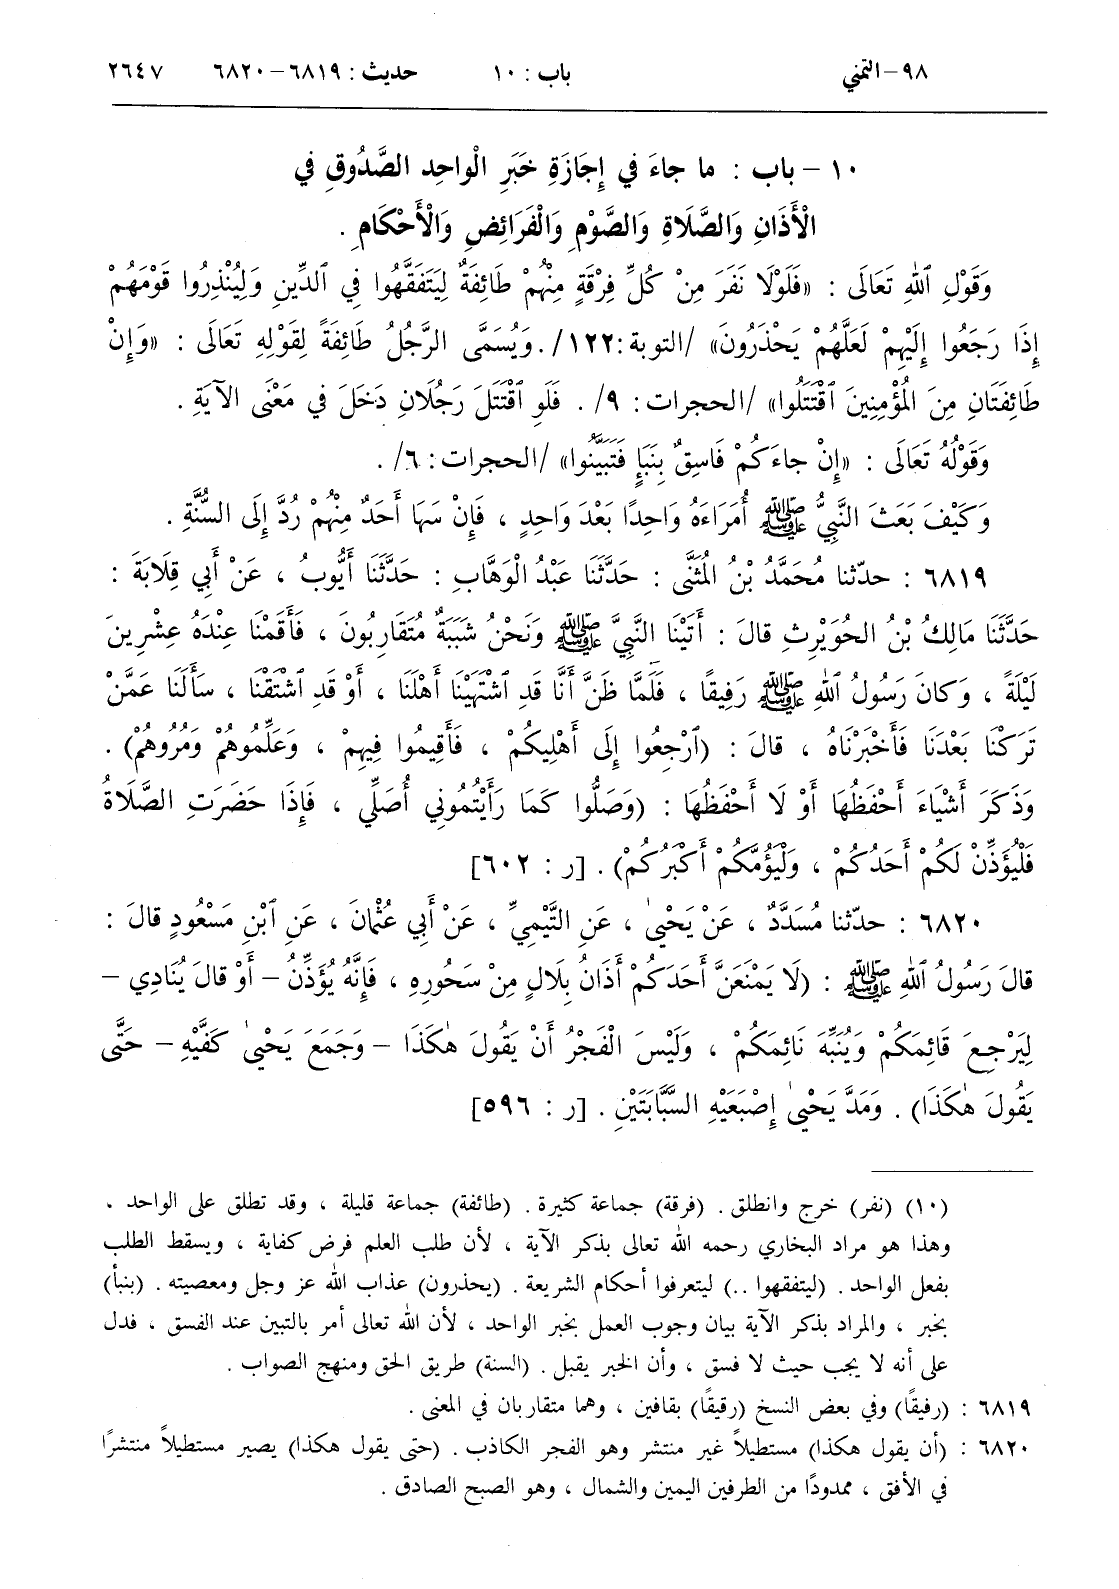 ٩٨ – التمني باب : ١٠ حديث : ٦٨١٩ – ٦٨٢٠ ٢٦٤٧
١٠ – باب : ما جاءَ في إِجَازَةِ خَبَرِ الْواحِدِ الصَّدُوقِ فِي
الْأَذَانِ وَالصَّلَاةِ وَالصَّوْمِ وَالْفَرَائِضِ وَالْأَحْكَامِ .
وَقَوْلِ ٱللهِ تَعَالَى : «فَلَوْلَا نَفَرَ مِنْ كُلِّ فِرْقَةٍ مِنْهُمْ طَائِفَةٌ لِيَتَفَقَّهُوا فِي ٱلدِّينِ وَلِيُنْذِرُوا قَوْمَهُمْ
إِذَا رَجَعُوا إِلَيْهِمْ لَعَلَّهُمْ يَحْذَرُونَ» /التوبة:١٢٢/. وَيُسَمَّى الرَّجُلُ طَائِفَةً لِقَوْلِهِ تَعَالَى : «وَإِنْ
طَائِفَتَانِ مِنَ الْمُؤْمِنِينَ ٱقْتَتَلُوا» /الحجرات: ٩/ . فَلَوِ ٱقْتَتَلَ رَجُلَانِ دَخَلَ في مَعْنَى الآيَةِ .
وَقَوْلُهُ تَعَالَى : «إِنْ جاءَكُمْ فَاسِقٌ بِنَبَإٍ فَتَبَيَّنُوا» /الحجرات: ٦/ .
وَكَيْفَ بَعَثَ النَّبِيُّ ﷺ أُمَرَاءَهُ وَاحِدًا بَعْدَ وَاحِدٍ ، فَإِنْ سَهَا أَحَدٌ مِنْهُمْ رُدَّ إِلَى السُّنَّةِ .
٦٨١٩ : حدّثنا مُحَمَّدُ بْنُ الْمُثَنَّى : حَدَّثَنَا عَبْدُ الْوَهَّابِ : حَدَّثَنَا أَيُّوبُ ، عَنْ أَبِي قِلَابَةَ :
حَدَّثَنَا مَالِكُ بْنُ الحُوَيْرِثِ قالَ : أَتَيْنَا النَّبِيَّ ﷺ وَنَحْنُ شَبَبَةٌ مُتَقَارِبُونَ ، فَأَقَمْنَا عِنْدَهُ عِشْرِينَ
لَيْلَةً ، وَكانَ رَسُولُ ٱللهِ ﷺ رَفِيقًا ، فَلَمَّا ظَنَّ أَنَّا قَدِ ٱشْتَهَيْنَا أَهْلَنَا ، أَوْ قَدِ ٱشْتَقْنَا ، سَأَلَنَا عَمَّنْ
تَرَكْنَا بَعْدَنَا فَأَخْبَرْنَاهُ ، قالَ : (ٱرْجِعُوا إِلَى أَهْلِيكُمْ ، فَأَقِيمُوا فِيهِمْ ، وَعَلِّمُوهُمْ وَمُرُوهُمْ) .
وَذَكَرَ أَشْيَاءَ أَحْفَظُهَا أَوْ لَا أَحْفَظُهَا : (وَصَلُّوا كَمَا رَأَيْتُمُونِي أُصَلِّي ، فَإِذَا حَضَرَتِ الصَّلَاةُ
فَلْيُؤَذِّنْ لَكُمْ أَحَدُكُمْ ، وَلْيَؤُمَّكُمْ أَكْبَرُكُمْ) . [ر : ٦٠٢]
٦٨٢٠ : حدّثنا مُسَدَّدٌ ، عَنْ يَحْيىٰ ، عَنِ التَّيْمِيِّ ، عَنْ أَبِي عُثْمَانَ ، عَنِ ٱبْنِ مَسْعُودٍ قالَ :
قالَ رَسُولُ ٱللهِ ﷺ : (لَا يَمْنَعَنَّ أَحَدَكُمْ أَذَانُ بِلَالٍ مِنْ سَحُورِهِ ، فَإِنَّهُ يُؤَذِّنُ – أَوْ قالَ يُنَادِي –
لِيَرْجِعَ قَائِمَكُمْ وَيُنَبِّهَ نَائِمَكُمْ ، وَلَيْسَ الْفَجْرُ أَنْ يَقُولَ هٰكَذَا – وَجَمَعَ يَحْيىٰ كَفَّيْهِ – حَتَّى
يَقُولَ هٰكَذَا) . وَمَدَّ يَحْيىٰ إِصْبَعَيْهِ السَّبَّابَتَيْنِ . [ر : ٥٩٦]
(١٠) (نفر) خرج وانطلق . (فرقة) جماعة كثيرة . (طائفة) جماعة قليلة ، وقد تطلق على الواحد ،
وهذا هو مراد البخاري رحمه الله تعالى بذكر الآية ، لأن طلب العلم فرض كفاية ، ويسقط الطلب
بفعل الواحد . (ليتفقهوا ..) ليتعرفوا أحكام الشريعة . (يحذرون) عذاب الله عز وجل ومعصيته . (بنبأ)
بخبر ، والمراد بذكر الآية بيان وجوب العمل بخبر الواحد ، لأن الله تعالى أمر بالتبين عند الفسق ، فدل
على أنه لا يجب حيث لا فسق ، وأن الخبر يقبل . (السنة) طريق الحق ومنهج الصواب .
٦٨١٩ : (رفيقًا) وفي بعض النسخ (رقيقًا) بقافين ، وهما متقاربان في المعنى .
٦٨٢٠ : (أن يقول هكذا) مستطيلاً غير منتشر وهو الفجر الكاذب . (حتى يقول هكذا) يصير مستطيلاً منتشرًا
في الأفق ، ممدودًا من الطرفين اليمين والشمال ، وهو الصبح الصادق .